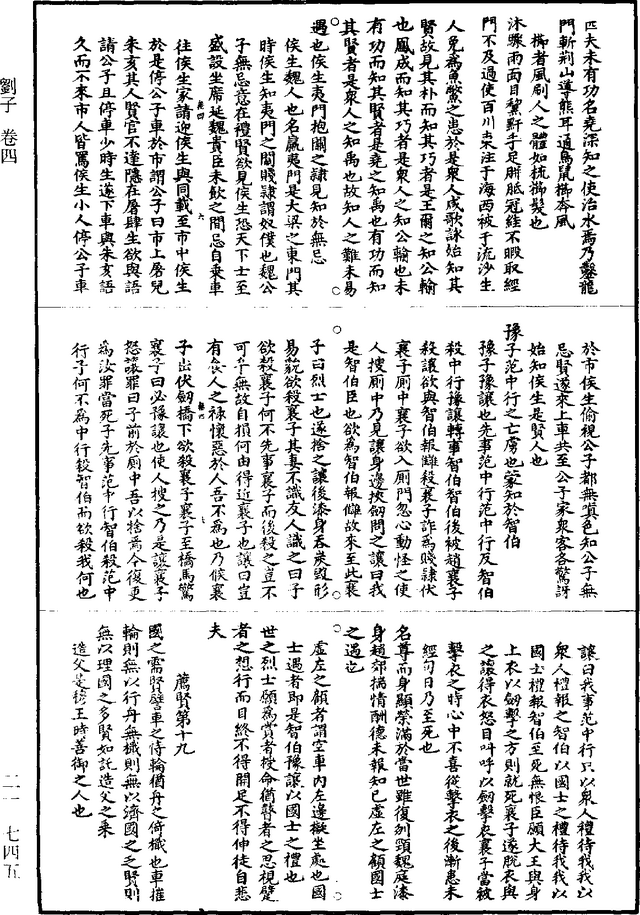 匹夫未有功名堯深知之使治水焉乃鑿龍
門斬荆山導熊耳通鳥鼠櫛奔風
櫛者風刷人之體如梳櫛髮也
沐驟雨面目黧黚手足胼胝冠絓不暇取經
門不及過使百川東注于海西被于流沙生
人免為魚鱉之患於是衆人咸歌詠始知其
賢故見其朴而知其巧者是王爾之知公輸
也鳳成而知其巧者是衆人之知公輸也未
有功而知其賢者是堯之知禹也有功而知
其賢者是衆人之知禹也故知人之難未易
遇也侯生夷門抱關之隷見知於無忌
侯生魏人也名嬴夷門是大梁之東門其
時侯生知夷門之關賤隷謂奴僕也魏公
子無忌意在禮賢欲見侯生恐天下士至
盛設坐席延魏貴臣未飲之間忌自乗車
往侯生家請迎侯生與同載至市中侯生
於是停公子車於市謂公子曰市上屠兒
朱亥其人賢官不達隱在屠肆生欲與語
請公子且停車少時生遂下車與朱亥語
久而不來市人皆罵侯生小人停公子車
於市侯生偷視公子都無嗔色知公子無
忌賢遂來上車共至公子家衆客各驚訝
始知侯生是賢人也
豫子范中行之亡虜也蒙知於智伯
豫子豫讓也先事范中行范中行反智伯
殺中行豫讓轉事智伯智伯後被趙襄子
殺讓欲與智伯報讎殺襄子詐為賤隷伏
襄子廁中襄子欲入廁門忽心動怪之使
人搜廁中乃見讓身邊挾劒問之讓曰我
是智伯臣也欲為智伯報讎故來至此襄
子曰烈士也遂捨之讓後漆身吞炭毀形
易貌欲殺襄子其妻不識友人識之曰子
欲殺襄子何不先事襄子而後殺之豈不
可乎無故自損何由得近襄子也讓曰豈
有食人之禄懷惡於人吾不為也乃候襄
子出伏劒橋下欲殺襄子襄子至橋馬驚
襄子曰必豫讓也使人搜之乃是讓襄子
怒讓罪曰子前於廁中吾以捨焉今復更
為汝罪當死子先事范中行智伯殺范中
行子何不為中行殺智伯而欲殺我何也
讓曰我事范中行只以衆人禮待我我以
衆人禮報之智伯以國士之禮待我我以
國士禮報智伯至死無恨臣願大王與身
上衣以劒擊之方則就死襄子遂脱衣與
之讓得衣怒目叫呼以劒擊衣襄子當被
擊衣之時心中不喜從擊衣之後漸患未
經旬日乃至死也
名尊而身顯榮滿於當世雖復刎頸魏庭漆
身趙郊揣情酬德未報知己虛左之顧國士
之遇也
虛左之顧者謂空車内左邊擬坐處也國
士遇者即是智伯豫讓以國士之禮也
世之烈士願為賞者授命猶瞽者之思視躄
者之想行而目終不得開足不得伸徒自悲
夫
薦賢第十九
國之需賢譬車之恃輪猶舟之倚檝也車摧
輪則無以行舟無檝則無以濟國之乏賢則
無以理國之多賢如託造父之乗
造父是穆王時善御之人也
劉子 卷四
二一 七四五